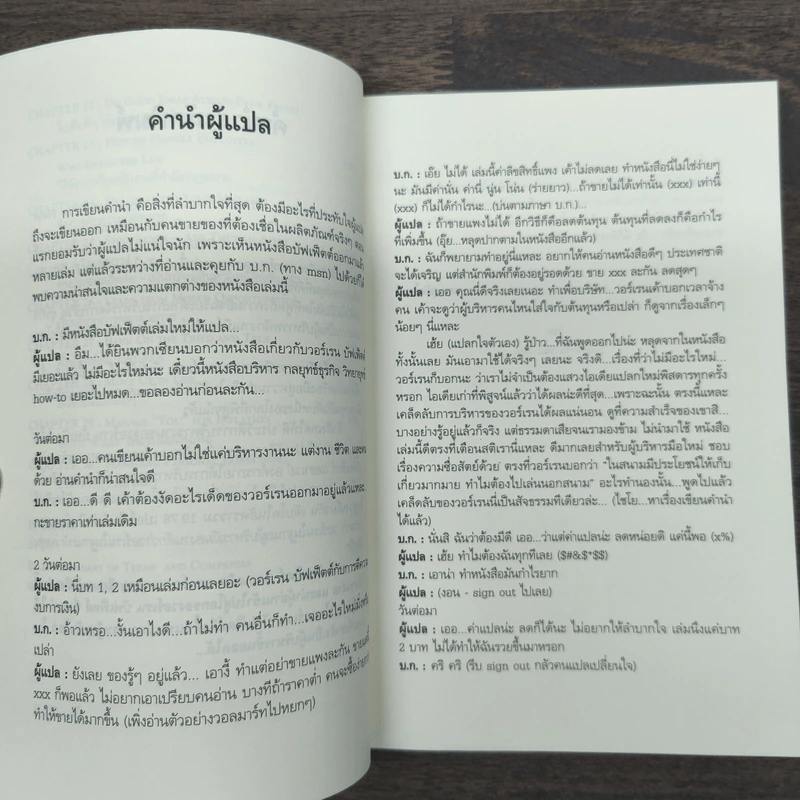 คำนำผู้แปล
การเขียนคำนำ คือสิ่งที่ลำบากใจที่สุด ต้องมีอะไรที่ประทับใจผู้แปล
ถึงจะเขียนออก เหมือนกับคนขายของที่ต้องเชื่อในผลิตภัณฑ์จริงๆ
แรกยอมรับว่าผู้แปลไม่แน่ใจนัก เพราะเห็นหนังสือบัฟเฟ็ตต์ออกมาแล้ว
หลายเล่ม แต่แล้วระหว่างที่อ่านและคุยกับ บ.ก. (ทาง msn) ไปด้วยก็ได้
พบความน่าสนใจและความแตกต่างของหนังสือเล่มนี้
บ.ก. : มีหนังสือบัฟเฟ็ตต์เล่มใหม่ให้แปล...
ผู้แปล : อืม...ได้ยินพวกเซียนบอกว่าหนังสือเกี่ยวกับวอร์เรน บัฟเฟ็ตต์
มีเยอะแล้ว ไม่มีอะไรใหม่นะ เดี๋ยวนี้หนังสือบริหาร กลยุทธ์ธุรกิจ วิทยายุทธ์
how-to เยอะไปหมด...ขอลองอ่านก่อนละกัน...
วันต่อมา
ผู้แปล : เออ...คนเขียนเค้าบอกไม่ใช่แค่บริหารงานนะ แต่งาน ชีวิต และ
ด้วย อ่านคำนำก็น่าสนใจดี
บ.ก. : เออ...ดี ดี เค้าต้องงัดอะไรเด็ดของวอร์เรนออกมาอยู่แล้วแหละ
กะขายราคาเท่าเล่มเดิม
2 วันต่อมา
ผู้แปล : นี่บท 1, 2 เหมือนเล่มก่อนเลยอะ (วอร์เรน บัฟเฟ็ตต์กับการตีความ
งบการเงิน)
บ.ก. : อ้าวเหรอ...งั้นเอาไงดี...ถ้าไม่ทำ คนอื่นก็ทำ...เจออะไรใหม่มั่ง
เปล่า
ผู้แปล : ยังเลย ของรู้ๆ อยู่แล้ว... เอางี้ ทำแต่อย่าขายแพงละกัน ขาย
xxx ก็พอแล้ว ไม่อยากเอาเปรียบคนอ่าน บางทีถ้าราคาต่ำ คนจะซื้อง่าย
ทำให้ขายได้มากขึ้น (เพิ่งอ่านตัวอย่างวอลมาร์ทไปหยกๆ)
บ.ก. : เอ๊ย ไม่ได้ เล่มนี้ค่าลิขสิทธิ์แพง เค้าไม่ลดเลย ทำหนังสือนี่ไม่ใช่ง่ายๆ
นะ มันมีค่านั่น ค่านี่ นู่น โน่น (ร่ายยาว)...ถ้าขายไม่ได้เท่านั้น (xxx) เท่านี้
(xxx) ก็ไม่ได้กำไรนะ...(บ่นตามภาษา บ.ก.)...
ผู้แปล : ถ้าขายแพงไม่ได้ อีกวิธีก็คือลดต้นทุน ต้นทุนที่ลดลงก็คือกำไร
ที่เพิ่มขึ้น (อุ๊ย...หลุดปากตามในหนังสืออีกแล้ว)
บ.ก. : ฉันก็พยายามทำอยู่นี่แหละ อยากให้คนอ่านหนังสือดีๆ ประเทศชาติ
จะได้เจริญ แต่สำนักพิมพ์ก็ต้องอยู่รอดด้วย ขาย xxx ละกัน ลดสุดๆ
ผู้แปล : เออ คุณนี่ดีจริงเลยเนอะ ทำเพื่อบริษัท...วอร์เรนเค้าบอกเวลาจ้าง
คน เค้าจะดูว่าผู้บริหารคนไหนใส่ใจกับต้นทุนหรือเปล่า ก็ดูจากเรื่องเล็กๆ
น้อยๆ นี่แหละ
เฮ้ย (แปลกใจตัวเอง) รู้ป่าว...ที่ฉันพูดออกไปน่ะ หลุดจากในหนังสือ
ทั้งนั้นเลย มันเอามาใช้ได้จริงๆ เลยนะ จริงดิ...เรื่องที่ว่าไม่มีอะไรใหม่...
วอร์เรนก็บอกนะ ว่าเราไม่จำเป็นต้องแสวงไอเดียแปลกใหม่พิสดารทุกครั้ง
หรอก ไอเดียเก่าที่พิสูจน์แล้วว่าได้ผลน่ะดีที่สุด...เพราะฉะนั้น ตรงนี้แหละ
เคล็ดลับการบริหารของวอร์เรนได้ผลแน่นอน ดูที่ความสำเร็จของเขาสิ...
บางอย่างรู้อยู่แล้วก็จริง แต่ธรรมดาเสียจนเรามองข้าม ไม่นำมาใช้ หนังสือ
เล่มนี้ดีตรงที่เตือนสติเรานี่แหละ ดีมากเลยสำหรับผู้บริหารมือใหม่ ชอบ
เรื่องความซื่อสัตย์ด้วย ตรงที่วอร์เรนบอกว่า "ในสนามมีประโยชน์ให้เก็บ
เกี่ยวมากมาย ทำไมต้องไปเล่นนอกสนาม" อะไรทำนองนั้น...พูดไปแล้ว
เคล็ดลับของวอร์เรนนี่เป็นสัจธรรมทีเดียวล่ะ... (ไชโย...หาเรื่องเขียนคำนำ
ได้แล้ว)
บ.ก. : นั่นสิ ฉันว่าต้องมีดี เออ...ว่าแต่ค่าแปลน่ะ ลดหน่อยดิ แค่นี้พอ (x%)
ผู้แปล : เฮ้ย ทำไมต้องฉันทุกทีเลย ($#&$*$$)
บ.ก. : เอาน่า ทำหนังสือมันกำไรยาก
ผู้แปล : (งอน - sign out ไปเลย)
วันต่อมา
ผู้แปล : เออ...ค่าแปลน่ะ ลดก็ได้นะ ไม่อยากให้ลำบากใจ เล่มนึงแค่บาท
2 บาท ไม่ได้ทำให้ฉันรวยขึ้นมาหรอก
บ.ก. : คริ คริ (รีบ sign out กลัวคนแปลเปลี่ยนใจ)